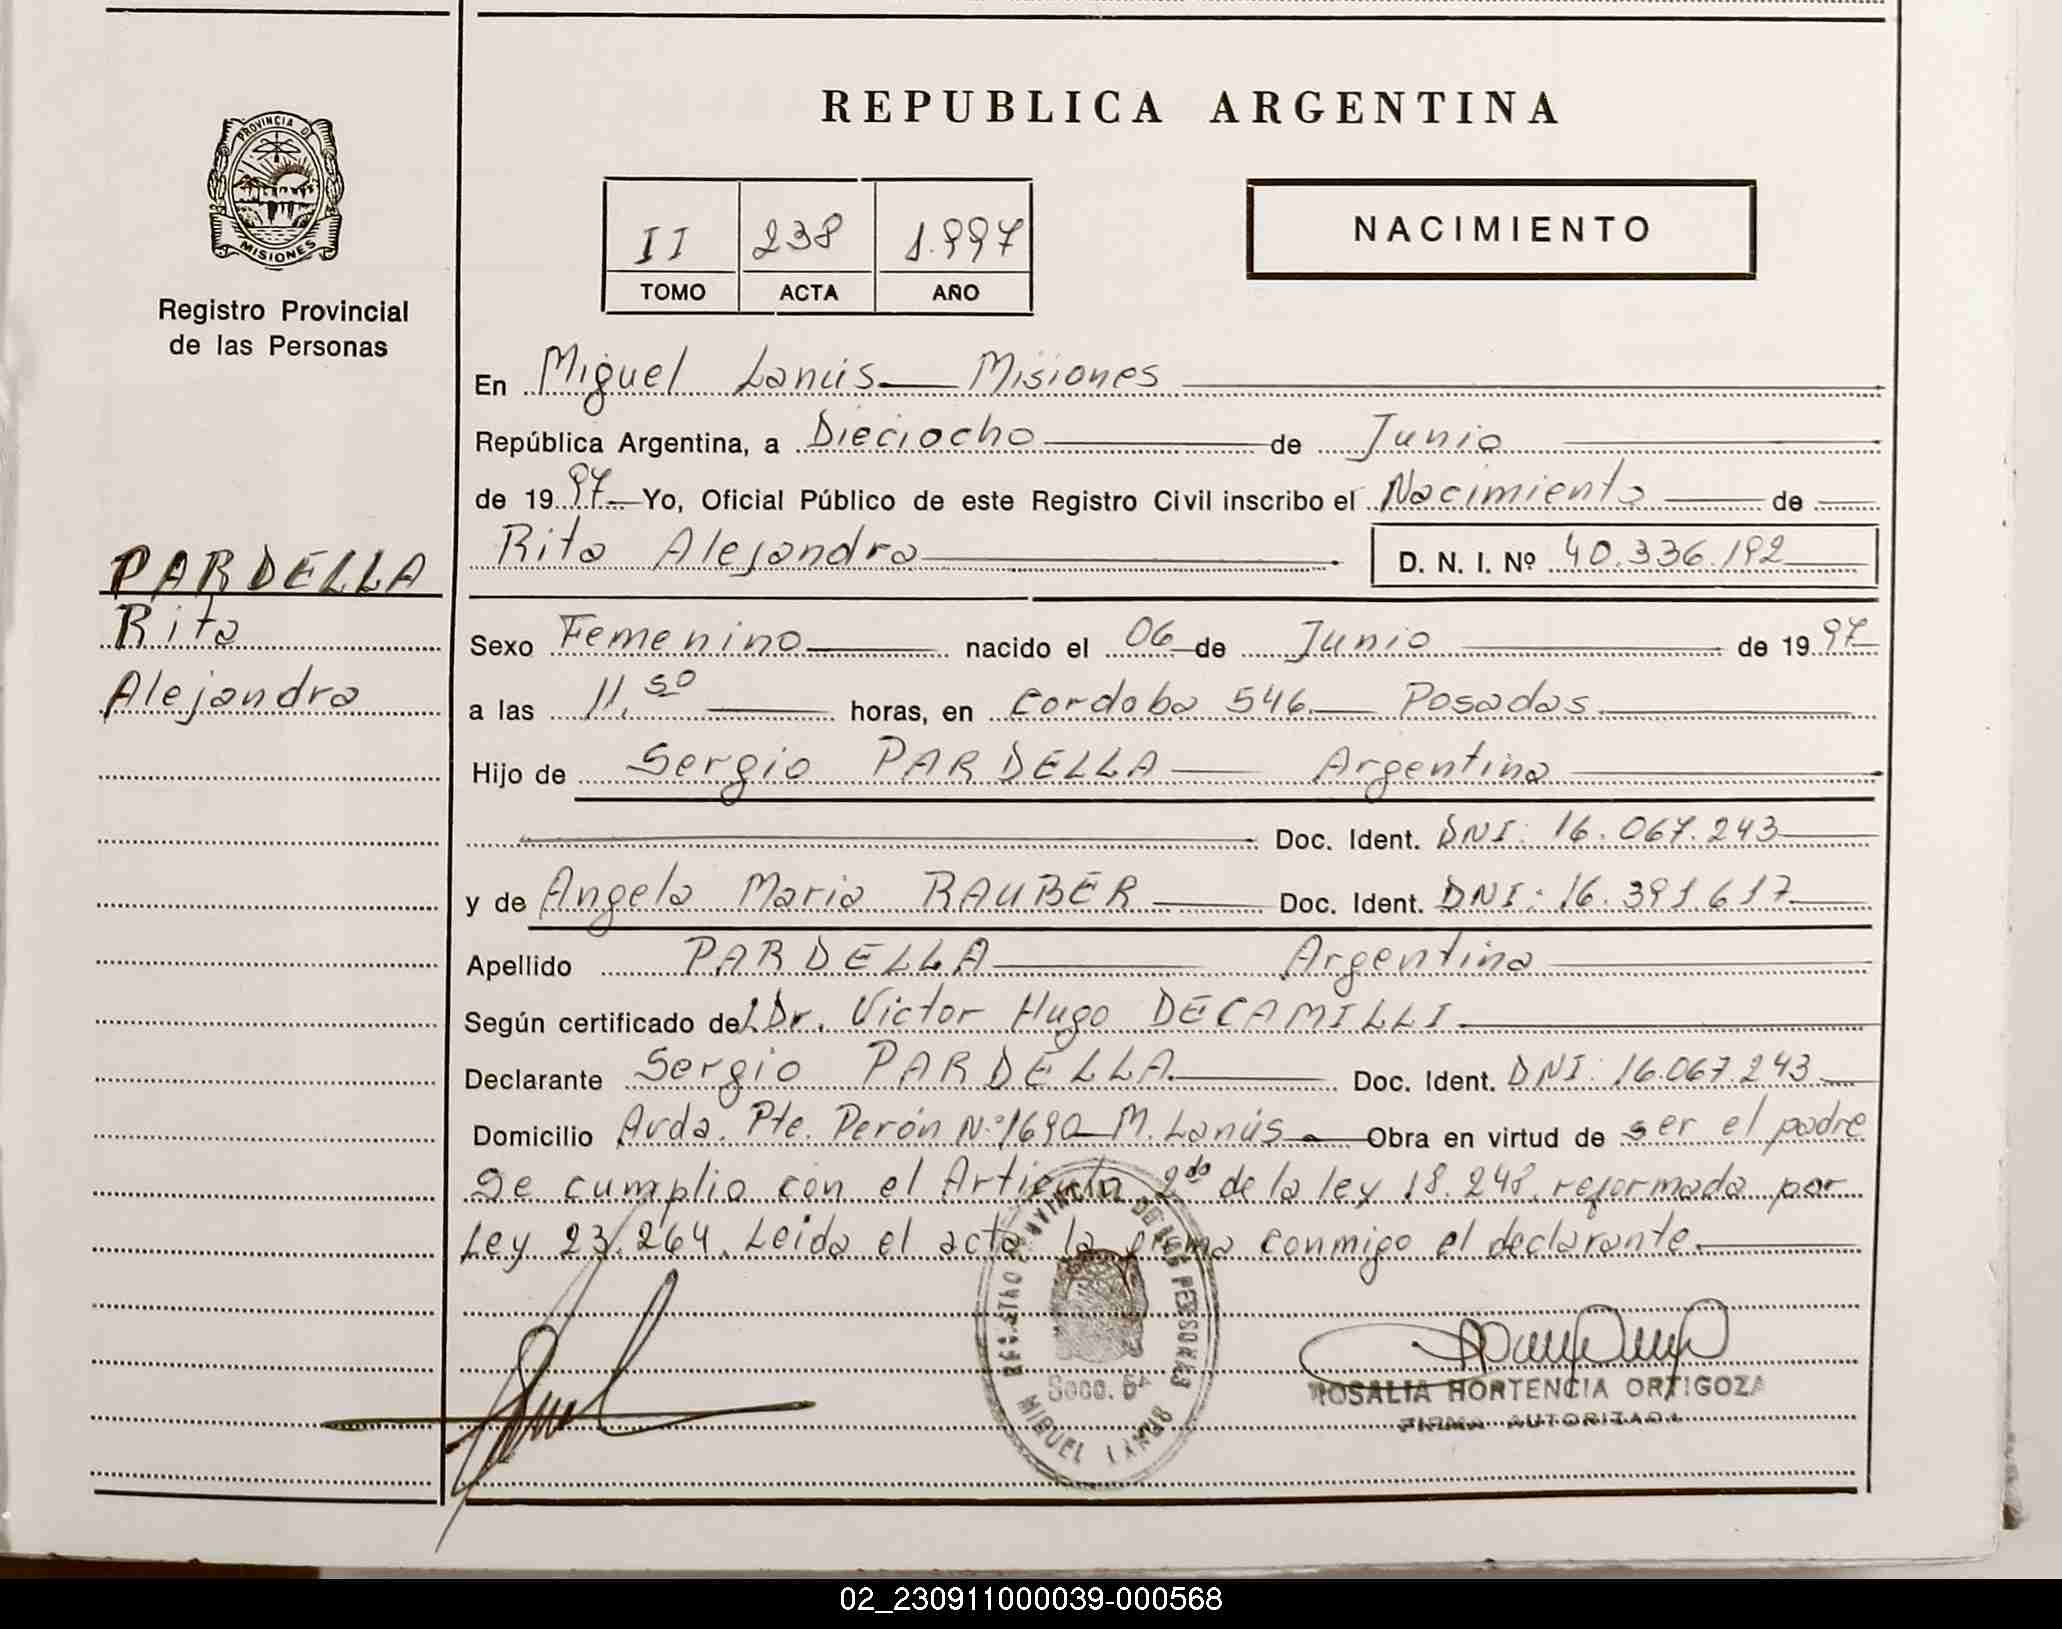 REPUBLICA ARGENTINA
PROVINCIA DE
MISIONES
Registro Provincial
de las Personas
II 238 1.997
TOMO ACTA AÑO
NACIMIENTO
En Miguel Lanús Misiones
República Argentina, a Dieciocho de Junio
de 1997 Yo, Oficial Público de este Registro Civil inscribo el Nacimiento de
Rita Alejandra D. N. I. Nº 40.336.192
PARDELLA
Rita
Alejandra
Sexo Femenino nacido el 06 de Junio de 1997
a las 11.50 horas, en Cordoba 546 Posadas
Hijo de Sergio PARDELLA Argentina
Doc. Ident. DNI: 16.067.243
y de Angela Maria RAUBER Doc. Ident. DNI: 16.391.617
Apellido PARDELLA Argentina
Según certificado del Dr. Victor Hugo DECAMILLI
Declarante Sergio PARDELLA Doc. Ident. DNI: 16.067.243
Domicilio Avda. Pte. Perón Nº 1690 M. Lanús Obra en virtud de ser el padre
Se cumplio con el Articulo 2do de la ley 18.248 reformada por
Ley 23.264. Leida el acta la firma conmigo el declarante.
REGISTRO PROVINCIAL DE LAS PERSONAS
MIGUEL LANUS
ROSALIA HORTENCIA ORTIGOZA
FIRMA AUTORIZADA
02_230911000039-000568